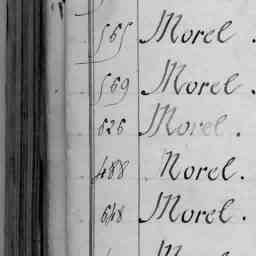 565 Morel.
569 Morel.
626 Morel.
488 Norel.
648 Morel.